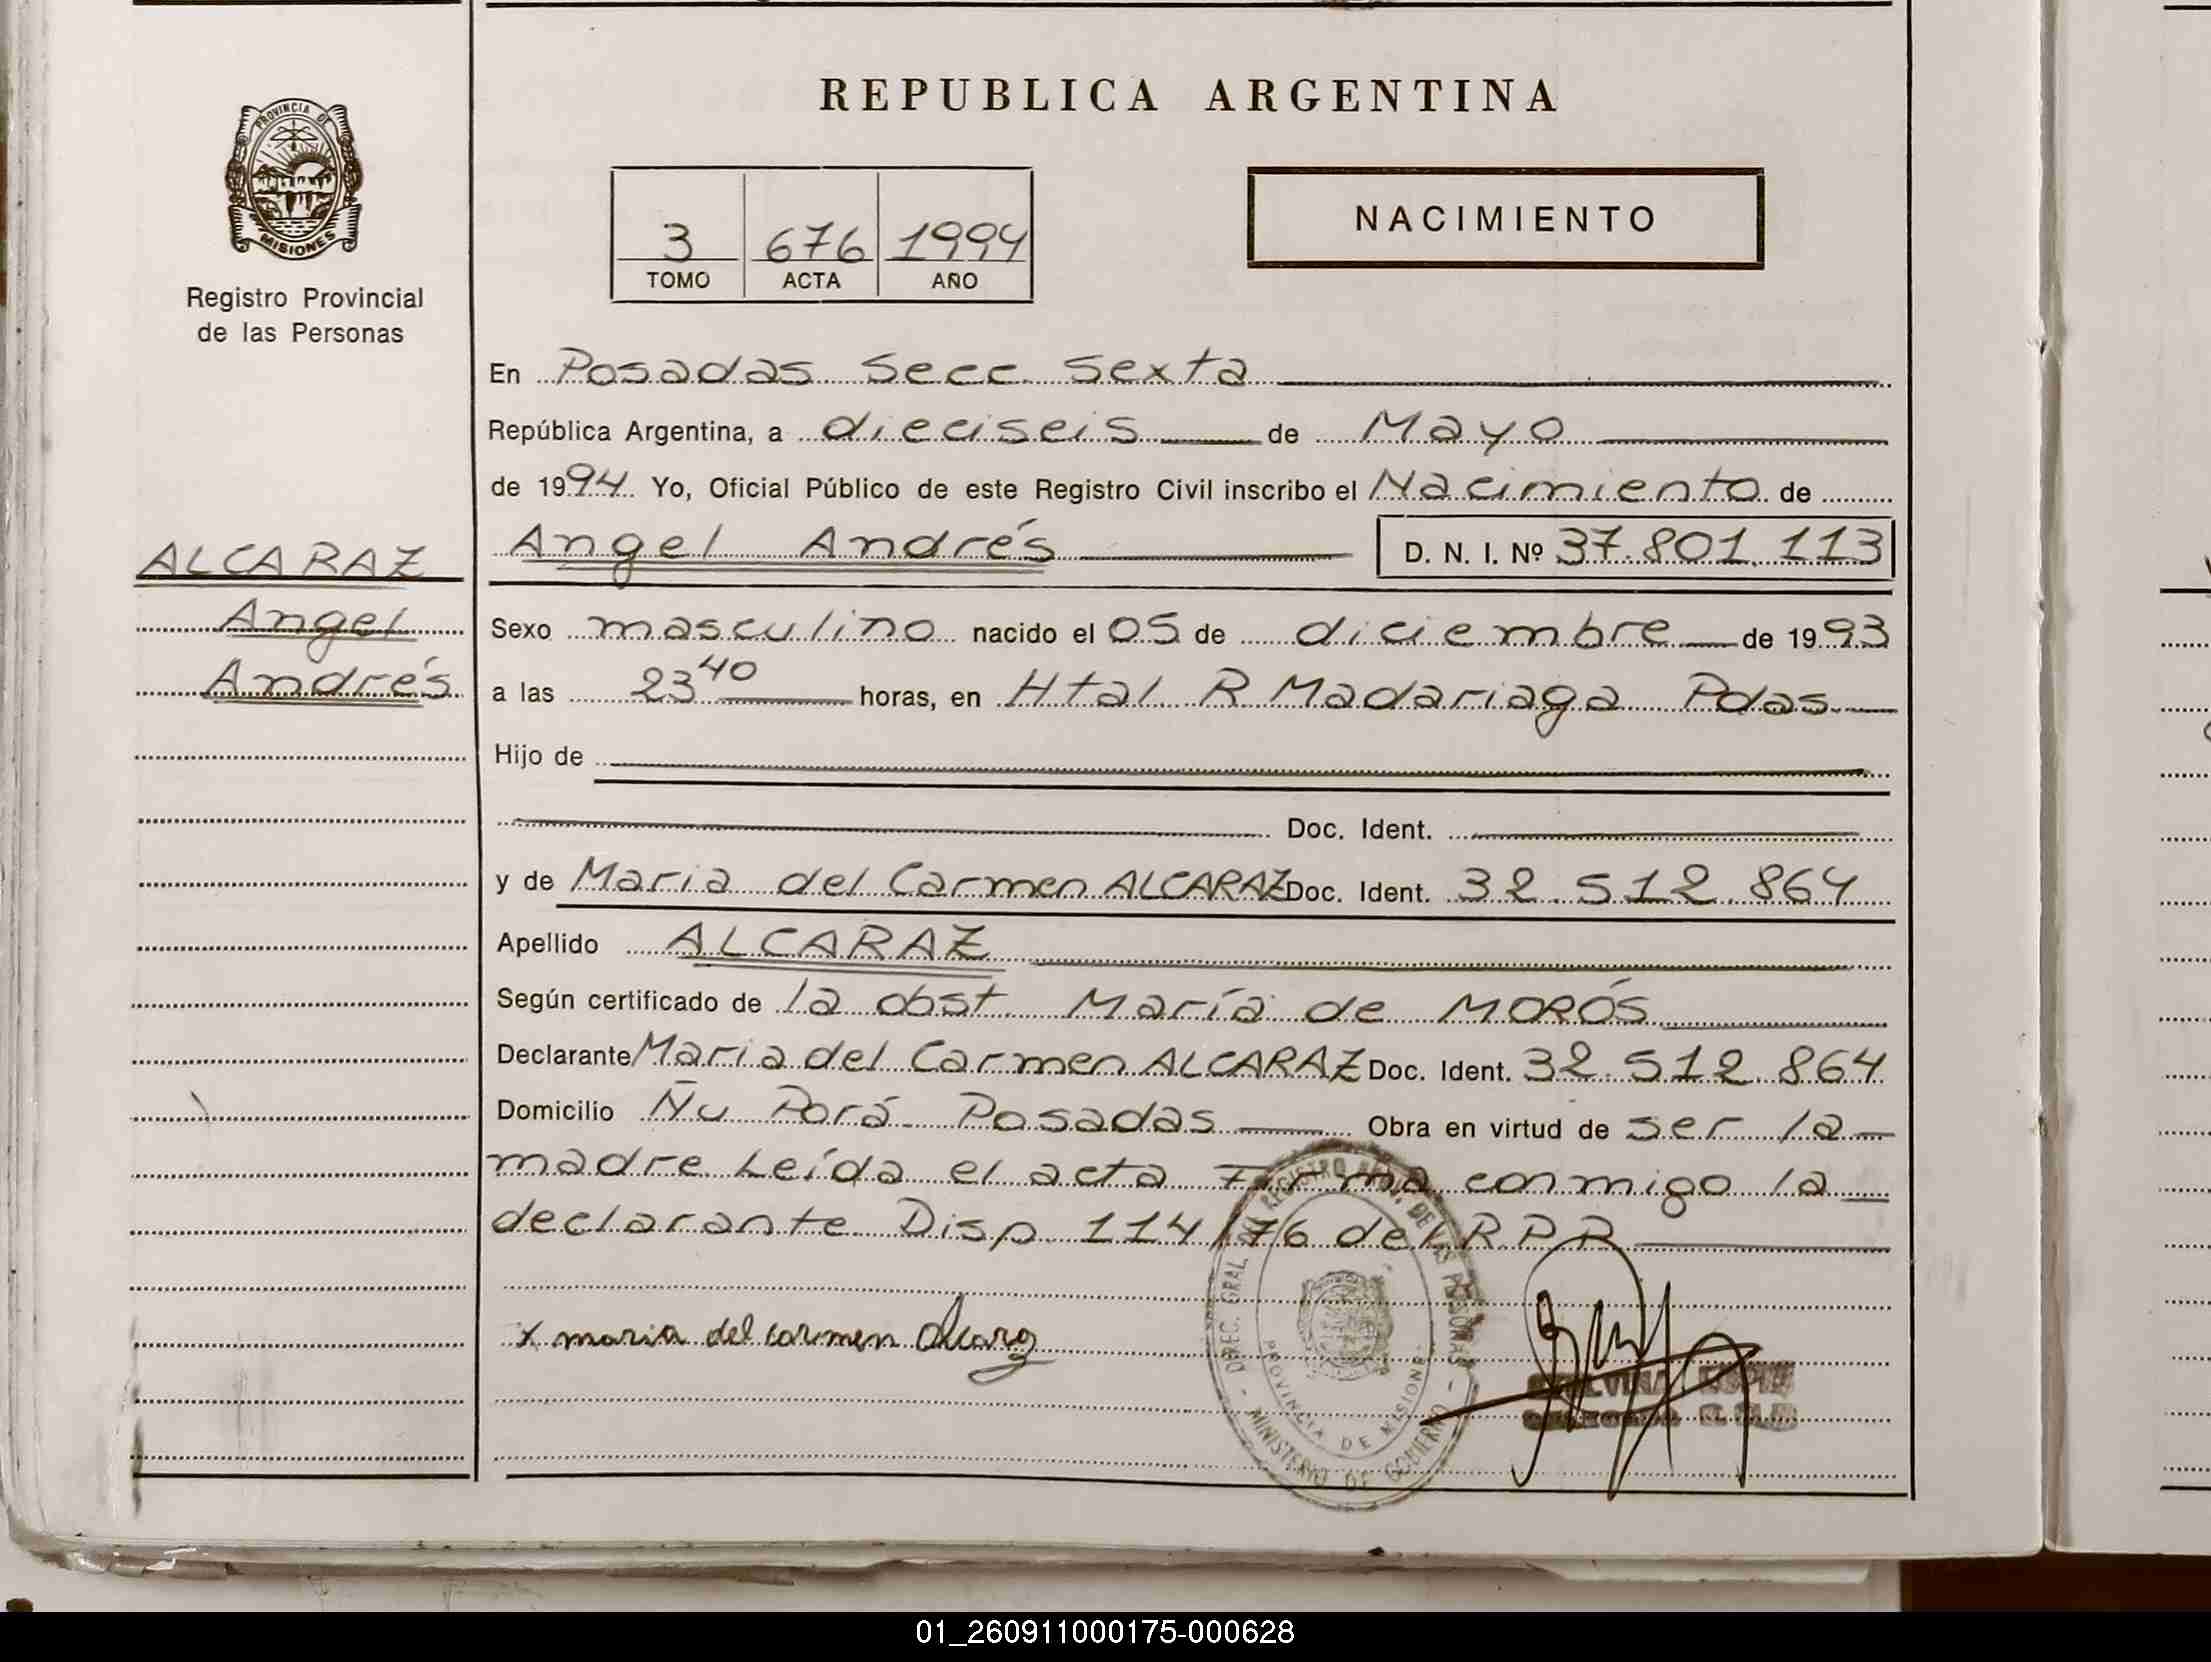 REPUBLICA ARGENTINA
PROVINCIA DE
MISIONES
Registro Provincial
de las Personas
3 676 1994
TOMO ACTA AÑO
NACIMIENTO
En Posadas Secc Sexta
República Argentina, a dieciseis de Mayo
de 1994. Yo, Oficial Público de este Registro Civil inscribo el Nacimiento de
Angel Andrés D. N. I. Nº 37.801.113
ALCARAZ
Angel
Andrés
Sexo masculino nacido el 05 de diciembre de 1993
a las 23 40 horas, en Htal R Madariaga Pdas.
Hijo de
Doc. Ident.
y de Maria del Carmen ALCARAZ Doc. Ident. 32.512.864
Apellido ALCARAZ
Según certificado de la obst. María de MORÓS
Declarante Maria del Carmen ALCARAZ Doc. Ident. 32.512.864
Domicilio Ñu Porá Posadas Obra en virtud de ser la
madre Leída el acta Firma conmigo la
declarante Disp. 114/76 del R.P.P
x maria del carmen Alcaraz
DIREC. GRAL. DEL REGISTRO PROV. DE LAS PERSONAS
PROVINCIA DE MISIONES
MINISTERIO DE GOBIERNO
01_260911000175-000628